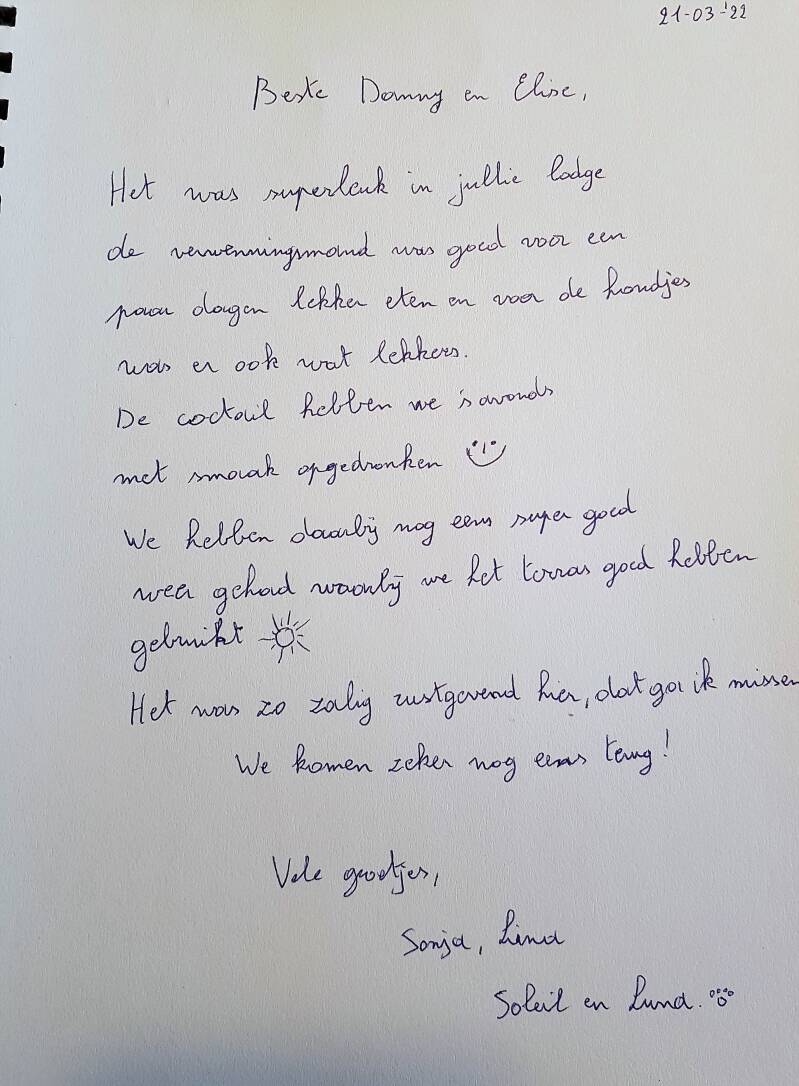 21-03-'22
Beste Danny en Elise,
Het was superleuk in jullie lodge
de verwenningsmand was goed voor een
paar dagen lekker eten en voor de hondjes
was er ook wat lekkers.
De coctail hebben we 's avonds
met smaak opgedronken
We hebben daarbij nog eens super goed
weer gehad waarbij we het terras goed hebben
gebruikt
Het was zo zalig rustgevend hier, dat ga ik missen
We komen zeker nog eens terug!
Vele groetjes,
Sonja, Lina
Soleil en Luna.